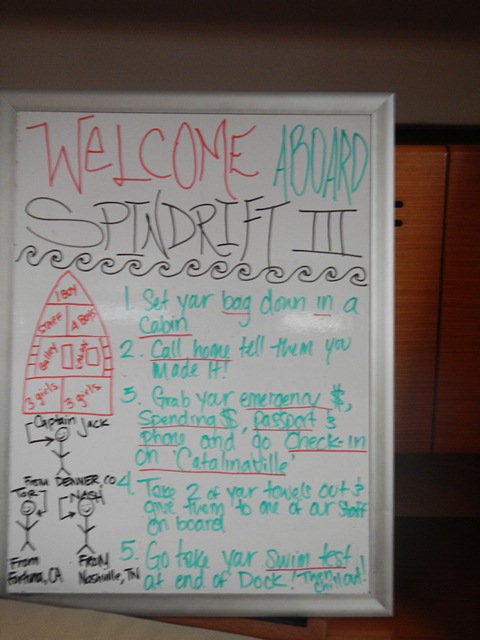 WELCOME ABOARD
SPINDRIFT III
1 BOY
STAFF 2 Boys
Galley
3 girls 3 girls
Captain JACK
From DENVER, CO
NASH
From
Fortuna, CA
FROM
Nashville, TN
1. Set your bag down in a
Cabin
2. Call home tell them you
Made It!
3. Grab your emergency $,
Spending $, Passport &
Phone and go Check-in
on 'Catalinaville'
4. Take 2 of your towels out &
give them to one of our Staff
on board
5. Go take your swim test
at end of Dock! Then
Chill out!